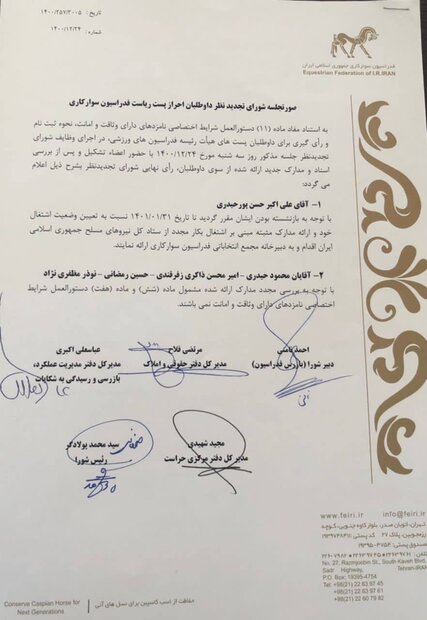 تاریخ: ۱۴۰۰/۲۵۷/۳۰۰۵
شماره: ۱۴۰۰/۱۲/۲۴
فدراسیون سوارکاری جمهوری اسلامی ایران
Equestrian Federation of I.R.IRAN
صورتجلسه شورای تجدید نظر داوطلبان احراز پست ریاست فدراسیون سوارکاری
به استناد مفاد ماده (۱۱) دستورالعمل شرایط اختصاصی نامزدهای دارای وثاقت و امانت، نحوه ثبت نام
و رأی گیری برای داوطلبان پست های هیأت رئیسه فدراسیون های ورزشی، در اجرای وظایف شورای
تجدیدنظر جلسه مذکور روز سه شنبه مورخ ۱۴۰۰/۱۲/۲۴ با حضور اعضاء تشکیل و پس از بررسی
اسناد و مدارک جدید ارائه شده از سوی داوطلبان، رأی نهایی شورای تجدیدنظر بشرح ذیل اعلام
می گردد:
۱- آقای علی اکبر حسن پورحیدری
با توجه به بازنشسته بودن ایشان مقرر گردید تا تاریخ ۱۴۰۱/۰۱/۳۱ نسبت به تعیین وضعیت اشتغال
خود و ارائه مدارک مثبته مبنی بر اشتغال بکار مجدد از ستاد کل نیروهای مسلح جمهوری اسلامی
ایران اقدام و به دبیرخانه مجمع انتخاباتی فدراسیون سوارکاری ارائه نمایند.
۲- آقایان محمود حیدری - امیر محسن ذاکری زفرقندی - حسین رمضانی - نوذر مظفری نژاد
با توجه به بررسی مجدد مدارک ارائه شده مشمول ماده (شش) و ماده (هفت) دستورالعمل شرایط
اختصاصی نامزدهای دارای وثاقت و امانت نمی باشند.
احمد
دبیر شورا (بازرس فدراسیون)
مرتضی فلاح
مدیر کل دفتر حقوقی و املاک
عباسعلی اکبری
مدیر کل دفتر مدیریت عملکرد،
بازرسی و رسیدگی به شکایات
مجید شهیدی
مدیر کل دفتر مرکزی حراست
سید محمد پولادگر
رئیس شورا
www.feiri.ir info@feiri.ir
تهران، اتوبان صدر، بلوار کاوه جنوبی، کوچه
رزمجویین، پلاک ۲۷ کد پستی:
صندوق پستی: ۱۹۳۹۵-۴۷۵۴
تلفن:
No. 27, Razmjoobin St., South Kaveh Blvd.
Sadr Highway, Tehran-IRAN
P.O. Box: 19395-4754
Tel: +98(21) 22 63 97 45
+98(21) 22 63 97 61
+98(21) 22 60 79 82
Conserve Caspian Horse for
Next Generations
حفاظت از اسب کاسپین برای نسل های آتی